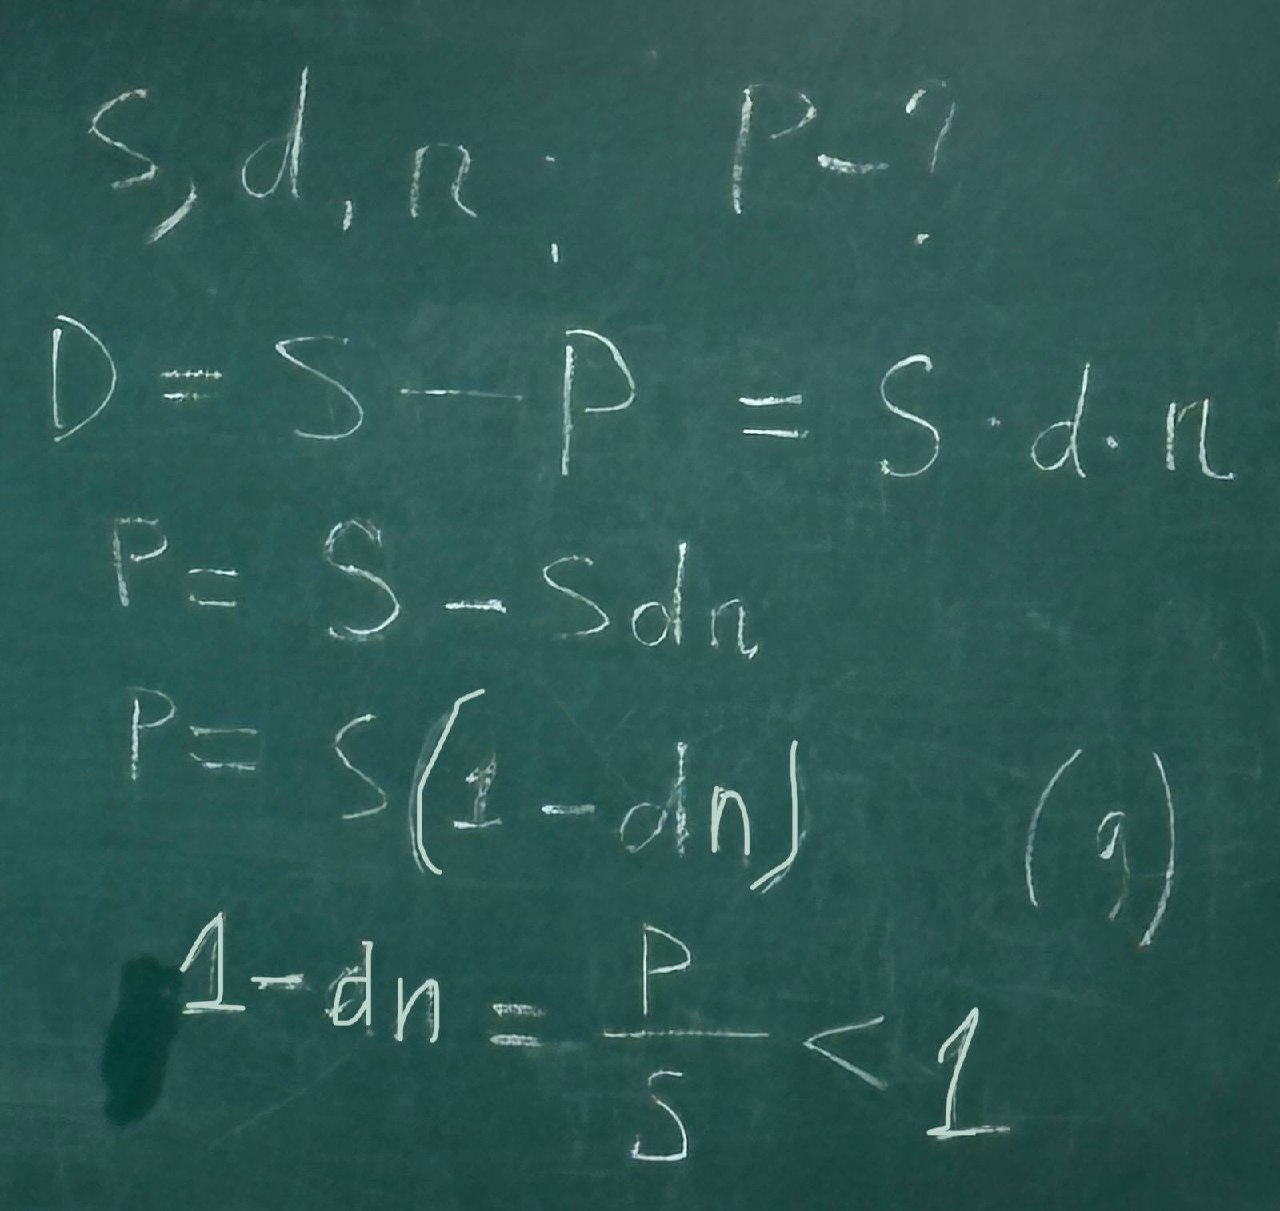 S, d, n; P-?
D = S - P = S · d · n
P = S - Sdn
P = S(1 - dn) (9)
1 - dn = P/S < 1